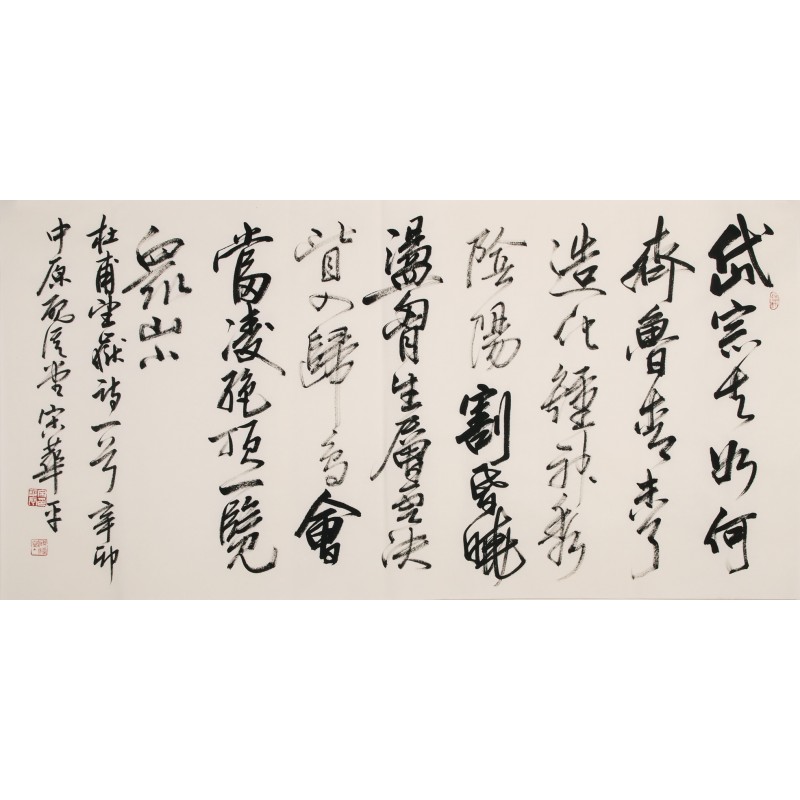 岱宗夫如何
齊魯青未了
造化鍾神秀
陰陽割昏曉
盪胷生層雲决
眥入歸鳥會
當凌絶頂一覽
眾山小
杜甫望嶽詩一首 辛卯
中原 宋華平